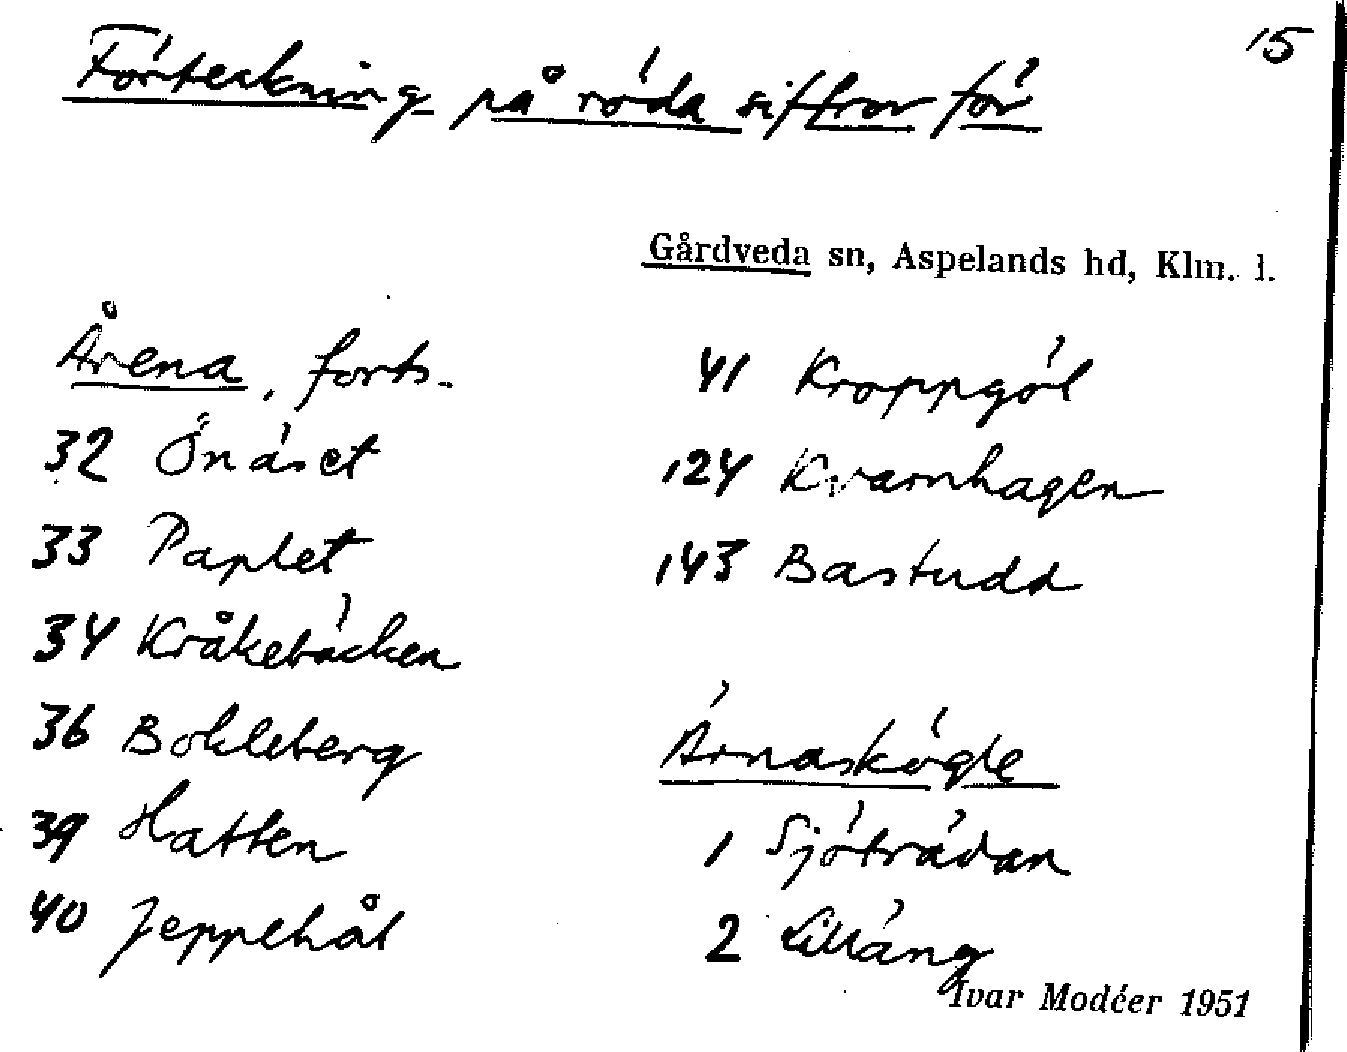 15
Förteckning på röda siffror för
Gårdveda sn, Aspelands hd, Klm. l.
Årena, forts.
32 Önäset
33 Paplet
34 Kråkebäcken
36 Bokleberg
39 Hatten
40 Jeppehål
41 Kroppgöl
124 Kvarnhagen
143 Bastudd
Ärnaskögle
1 Sjöträdan
2 Lilläng
Ivar Modéer 1951